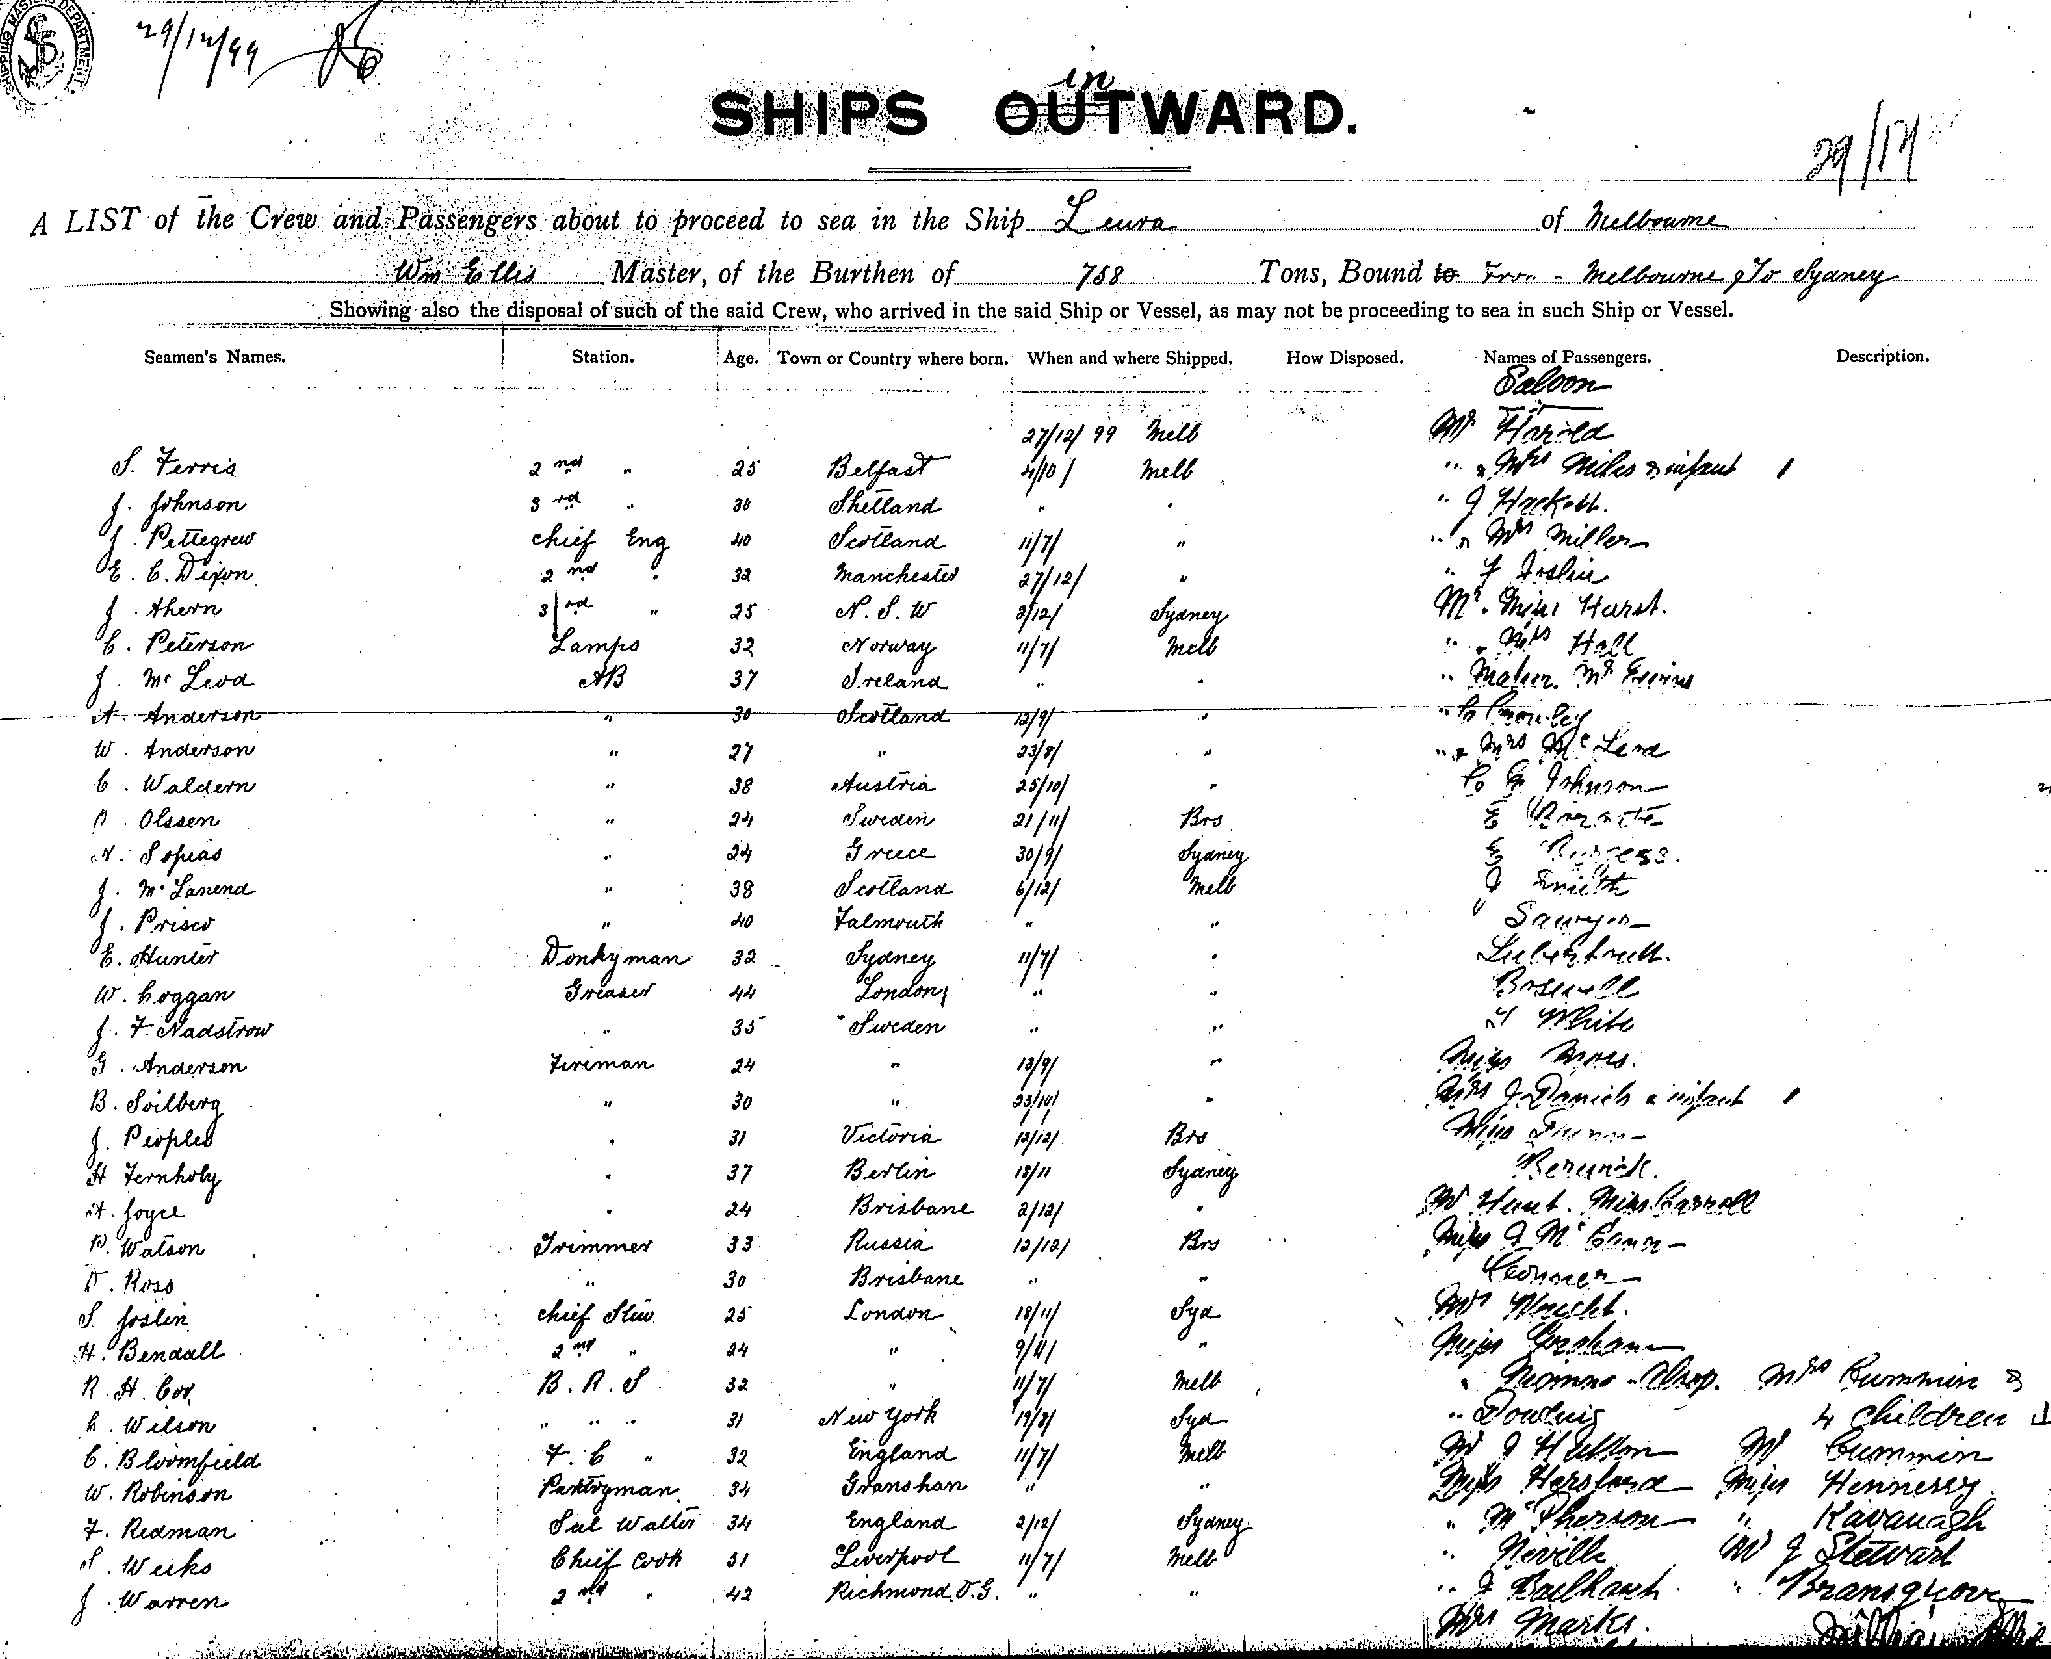 SHIPPING MASTER'S DEPARTMENT
29/12/99
in
SHIPS OUTWARD.
29/12
A LIST of the Crew and Passengers about to proceed to sea in the Ship Leura of Melbourne
Wm Ellis Master, of the Burthen of 758 Tons, Bound to From Melbourne To Sydney
Showing also the disposal of such of the said Crew, who arrived in the said Ship or Vessel, as may not be proceeding to sea in such Ship or Vessel.
Seamen's Names. Station. Age. Town or Country where born. When and where Shipped. How Disposed. Names of Passengers. Description.
Saloon
27/12/99 Melb Mr Harold
S. Ferris 2nd " 25 Belfast 4/10/ Melb " & Mrs Miles & infant 1
J. Johnson 3rd " 36 Shetland " " " J Hackett.
J. Pettegrew Chief Eng 40 Scotland 11/7/ " " & Mrs Miller
E. C. Dixon 2nd " 32 Manchester 27/12/ " "
J. Ahern 3rd " 25 N. S. W 2/12/ Sydney Mr. Miss Hurst.
C. Peterson Lamps 32 Norway 11/7/ Melb " & Mrs Hall
J. McLeod AB 37 Ireland " " " Maher. Mr
A. Anderson " 30 Scotland 13/9/ " " Crowley
W. Anderson " 27 " 23/8/ " " & Mrs McLeod
C. Waldern " 38 Austria 25/10/ " Johnson
O. Olssen " 24 Sweden 21/11/ Brs E
N. Sopias " 24 Greece 30/9/ Sydney E Burgess.
J. McLanend " 38 Scotland 6/12/ Melb J Smith
J. Prisco " 40 Falmouth " " " Sawyer
E. Hunter Donkyman 32 Sydney 11/7/ "
W. Coggan Greaser 44 London " " Boswell
J. F. Nadstrow " 35 Sweden " " White
G. Anderson Fireman 24 " 13/9/ " Miss Moss.
B. Soilberg " 30 " 23/10/ " Mrs J Daniels & infant 1
J. Peoples " 31 Victoria 12/12/ Brs Miss
H Fernholy " 37 Berlin 18/11 Sydney Berwick.
A. Joyce " 24 Brisbane 2/12/ " Mr Hunt. Miss Carroll
P. Watson Trimmer 33 Russia 12/12/ Brs Miss J Mc
D. Ross " 30 Brisbane " "
S. Joslin Chief Stew 25 London 18/11/ Syd Mrs Wright.
H. Bendall 2nd " 24 " 9/11/ " Miss Gresham
R. H. Cox B. R. S 32 " 11/7/ Melb " Mrs Cummin &
C. Wilson " " " 31 New York 19/8/ Syd " Dowling 4 Children
C. Bloomfield F. C " 32 England 11/7/ Melb Mr J Hutton Mr Cummin
W. Robinson Pantryman 34 Granshan " " Miss Horsford Miss Hennessy.
F. Redman Sal Waiter 34 England 2/12/ Sydney " McPherson " Kavanagh
S. Weeks Chief Cook 51 Liverpool 11/7/ Melb " Neville Mr J Stewart
J. Warren 2nd " 42 Richmond " " " J " Bransgrove
Mrs Marks.